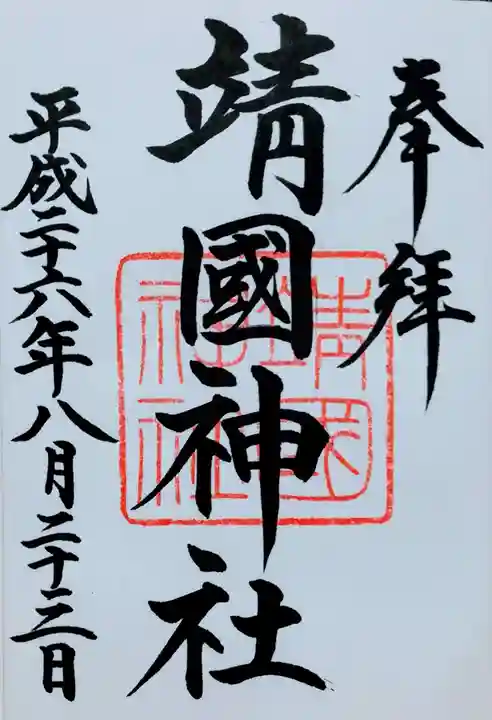 奉拝
靖國神社
靖國
神社
平成二十六年八月二十三日